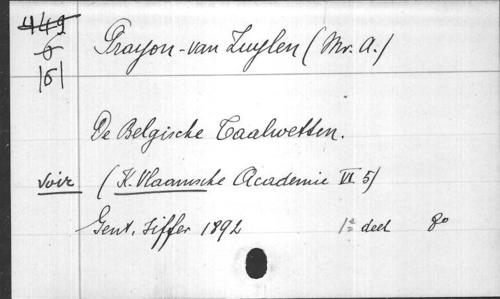 449
6
151
Prayon-van Zuylen (Mr. A.)
De Belgische Taalwetten.
voir (K. Vlaamsche Academie VI 5)
Gent, Siffer 1892 1e deel 8o